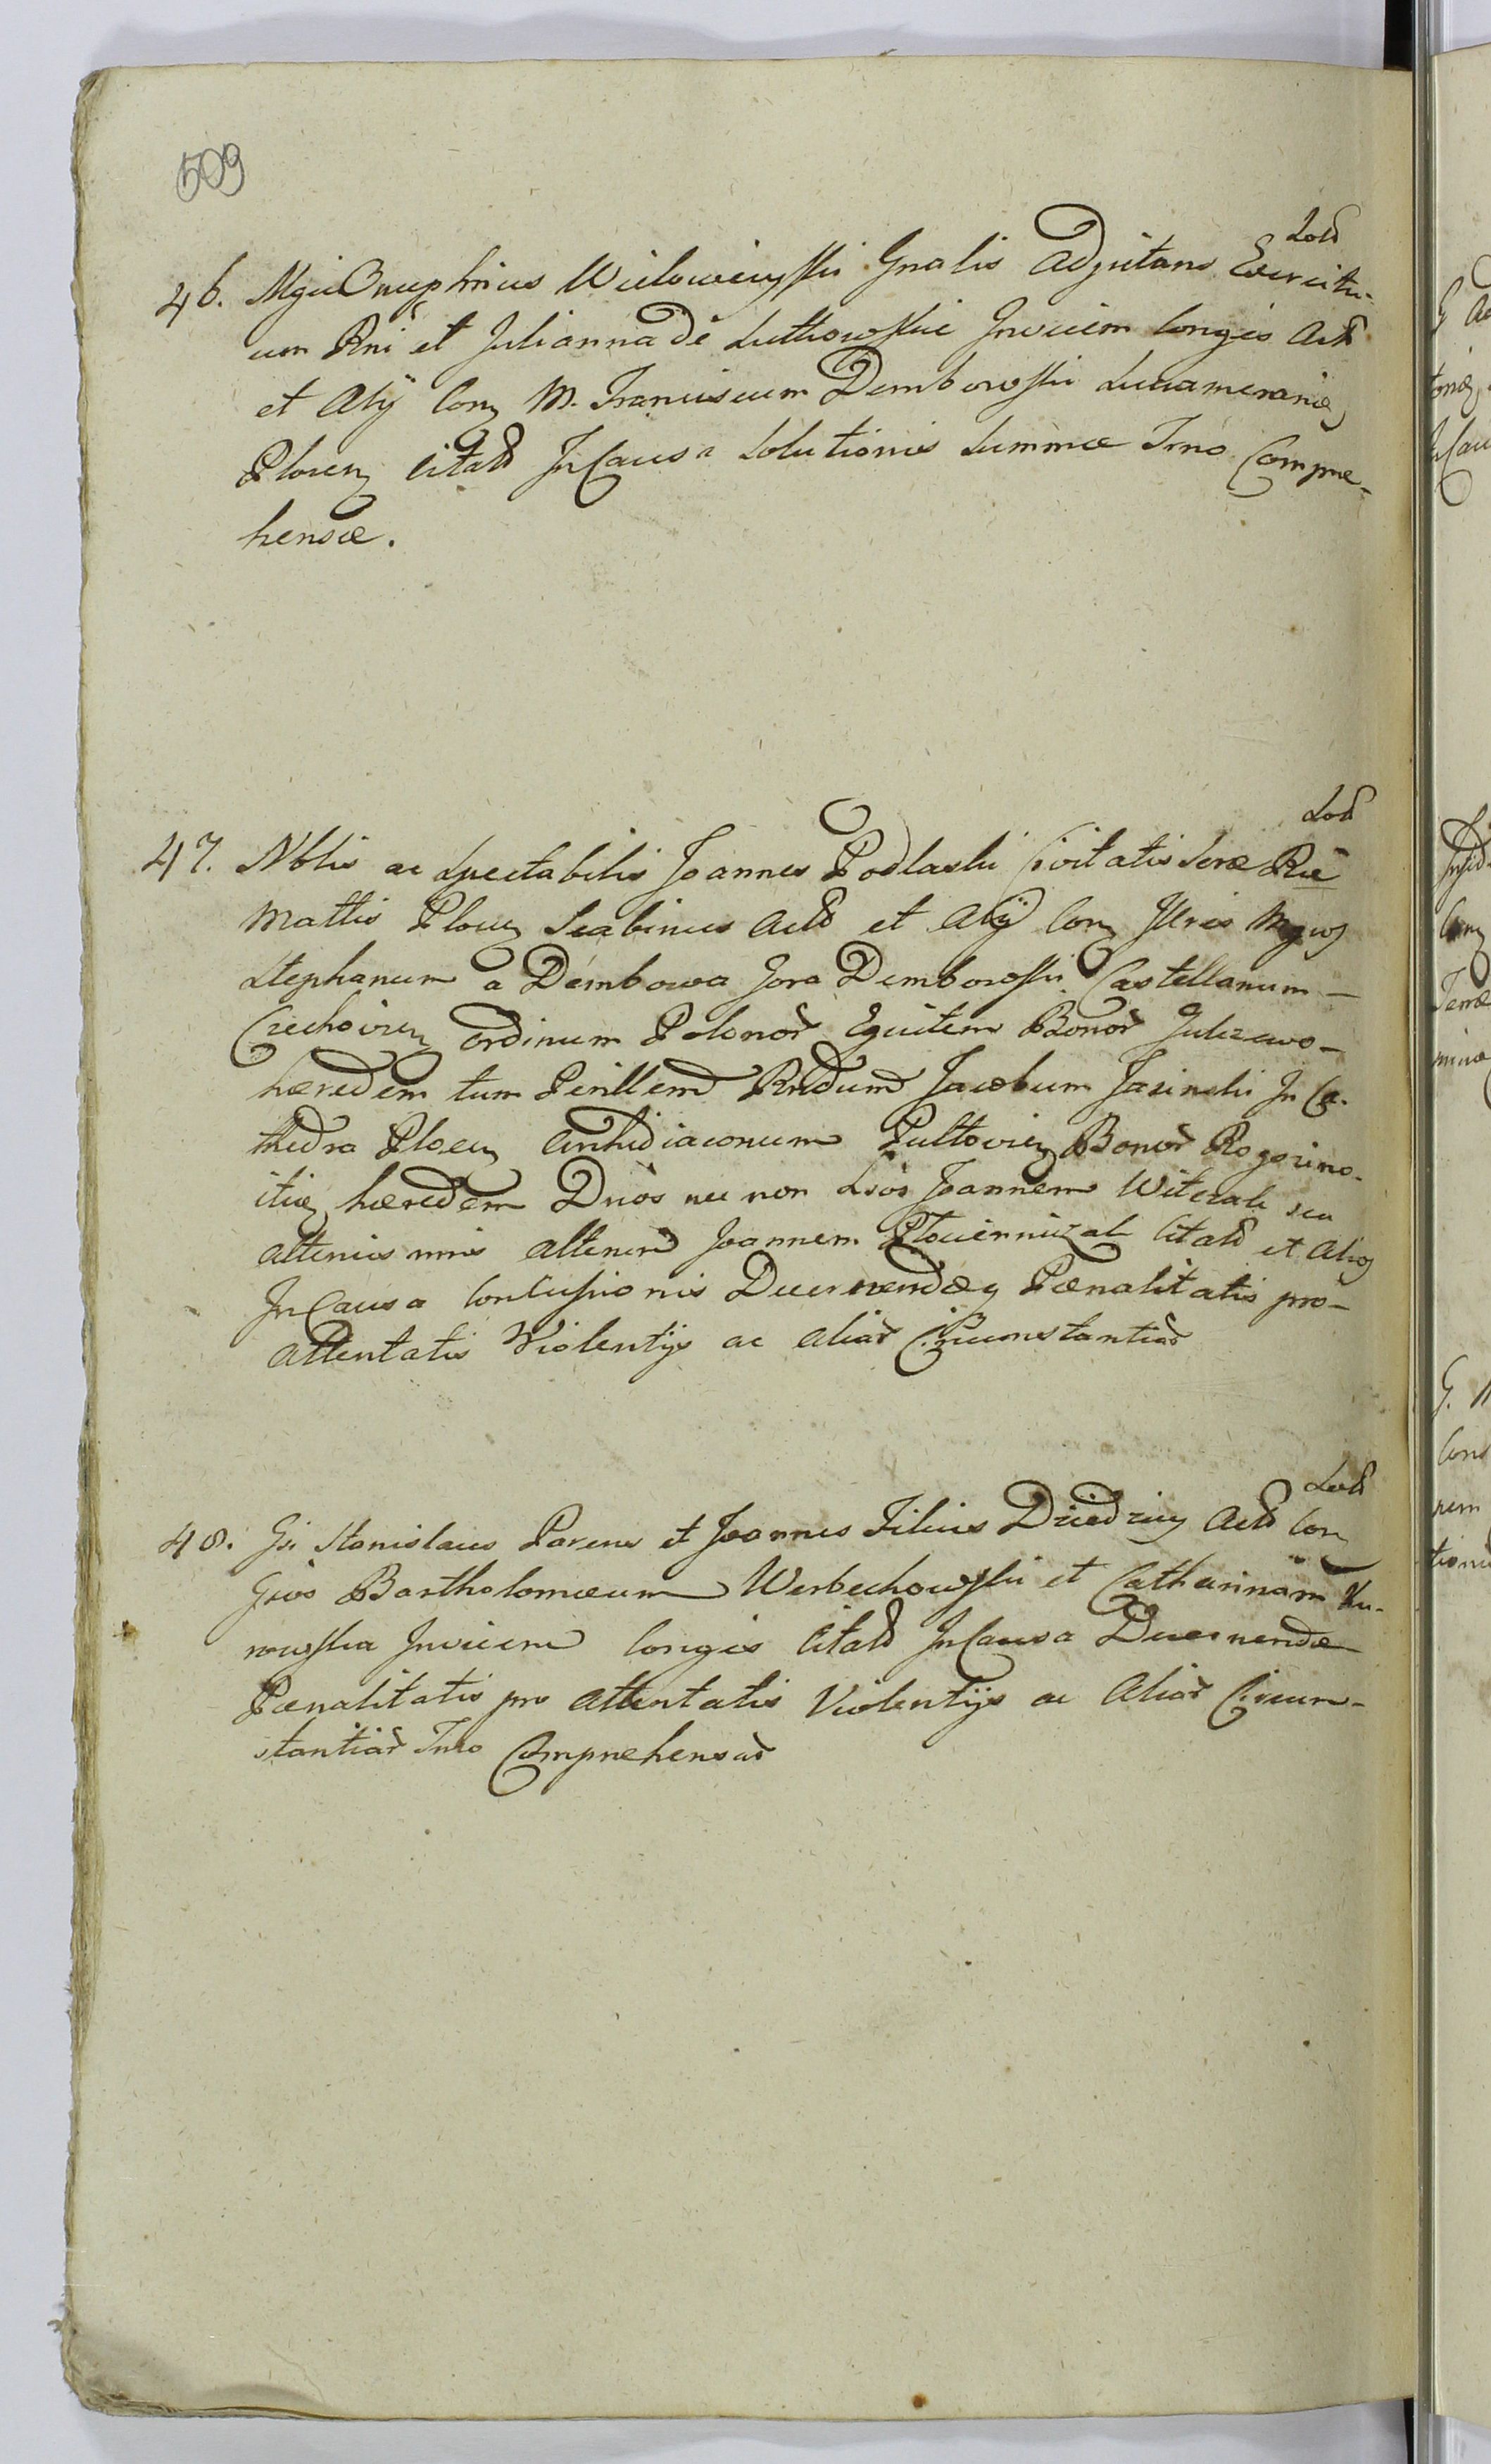 509
46. Mgci Onuphrius Wielowieyski Gnalis Adjutans Exercitu-
um Rni et Julianna de Lutkowskie Invicem Conges Actt
et Alij Con M. Franciscum Dembowski Succamerariu
Plocen Citatt In Causa Solutionis Summæ Tmo Compre-
hensæ.
47. Nblis ac Spectabilis Joannes Podlaski Civitatis Sacræ Ræ
Mattis Plocen Scabinus Actt et Alij Con Illres Mgcos
Stephanum a Dembowa Gora Dembowski Castellanum
Czechovien Ordinum Polonor Equitem Bonor Gulczewo
hæredem tum Perillem Rndum Jacobum Jasinski In Ca-
thedra Plocen Archidiaconum Pultovien Bonor Rogozino
hæredem Dnos nec non Joannem Witczak seu
alterius nnis Joannem Citatt et Alios
In Causa Decernendæq Pænalitatis pro
attentatis Violentijs ac aliar Circumstantiar
48. Gsi Stanislaus Parens et Joannes Filius Dziedzicy Actt Con
Gsos Bartholomæum Werbechowski et Catharinam Ku-
rowska Invicem Conges Citatt In Causa Decernendæ
Pænalitatis pro attentatis Violentijs ac Aliar Circum-
stantiar Tmo Comprehensar